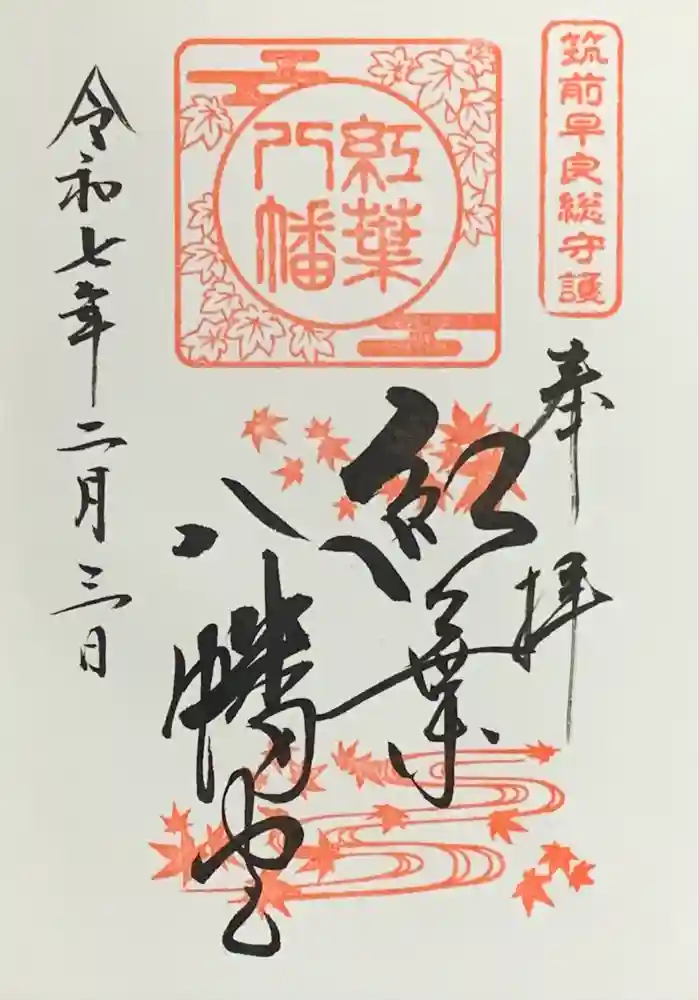 筑前早良総守護
奉拝
紅葉
八幡
紅葉
八幡宮
令和七年二月三日